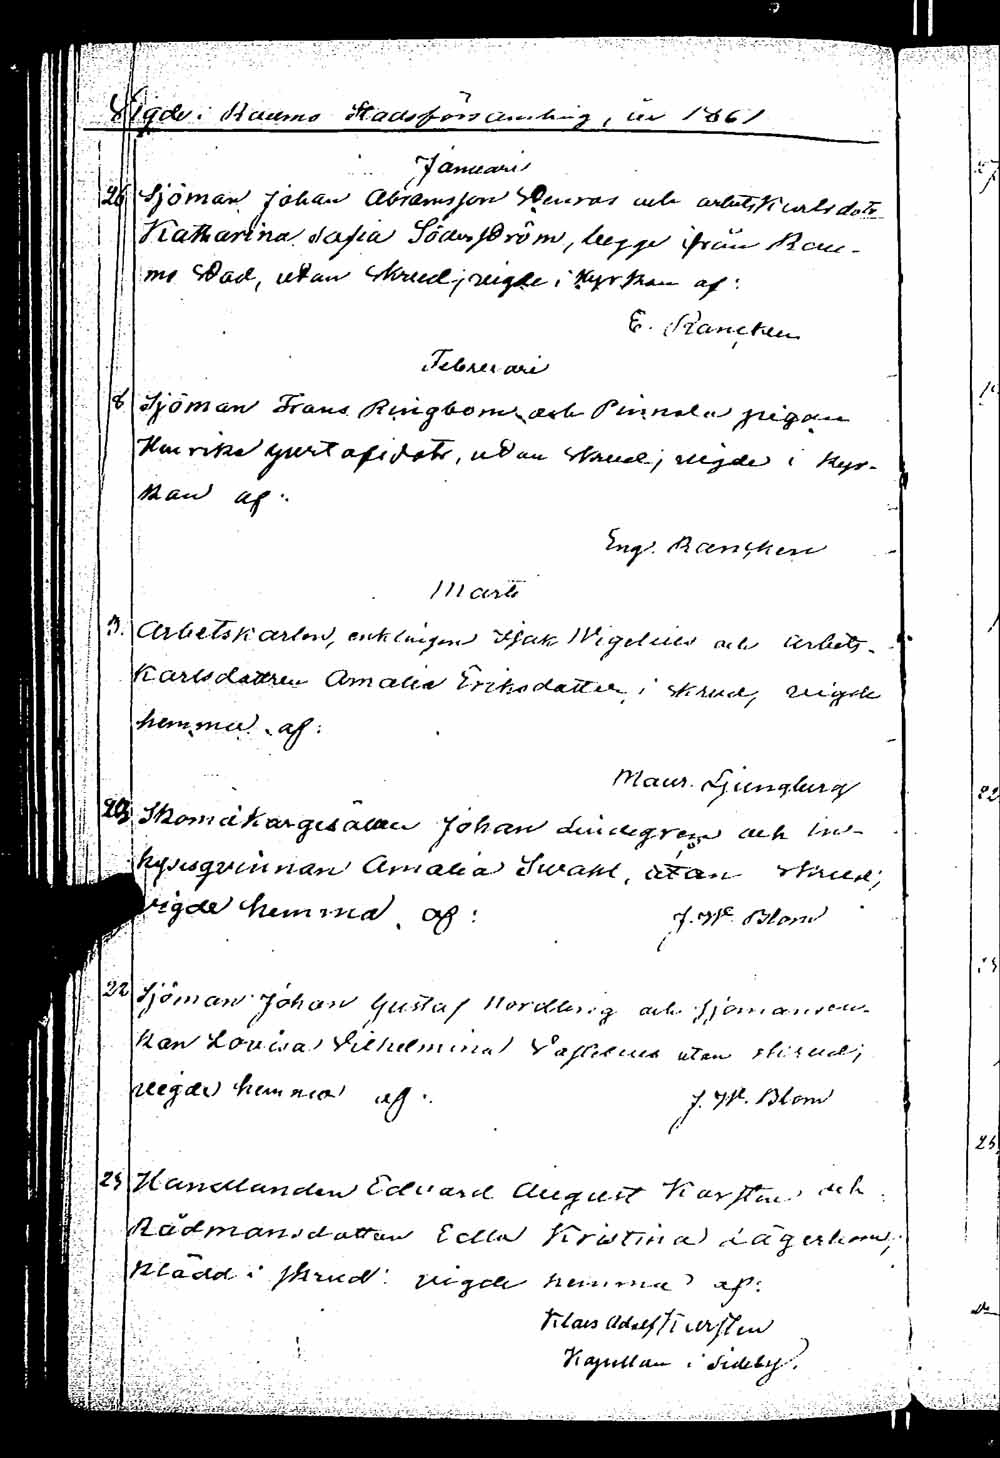 Vigde i Raumo Stadsförsamling, år 1861
Januari
26 Sjöman Johan Abramsson och arbetskarlsdotr
Katharina Sofia Söderström, begge ifrån Rau-
mo stad, utan skrud; vigde i kyrkan af:
E. Rancken
Februari
8 Sjöman Frans Ringbom och Pinnala pigan
Henrika Gustafsdotr, utan skrud; vigde i kyr-
kan af:
Eng. Rancken
Marts
3. Arbetskarlen, enklingen Isak Wigelius och arbets-
karlsdottren Amalia Eriksdotter, i skrud, vigde
hemma af:
Maur. Ljungberg
Skomakaregesällen Johan Lindegren och in-
hysesqvinnan Amalia Swahl, utan skrud;
vigde hemma af:
J. W. Blom
22 Sjöman Johan Gustaf Nordling och sjömansen-
kan Lovisa Vilhelmina utan skrud;
vigde hemma af:
J. W. Blom
25 Handlanden Edvard August Karsten och
Rådmansdottren Edla Kristina Lagerbom,
klädd i skrud: vigde hemma af:
Klaes Adolf Karsten
Kapellan i Sideby.